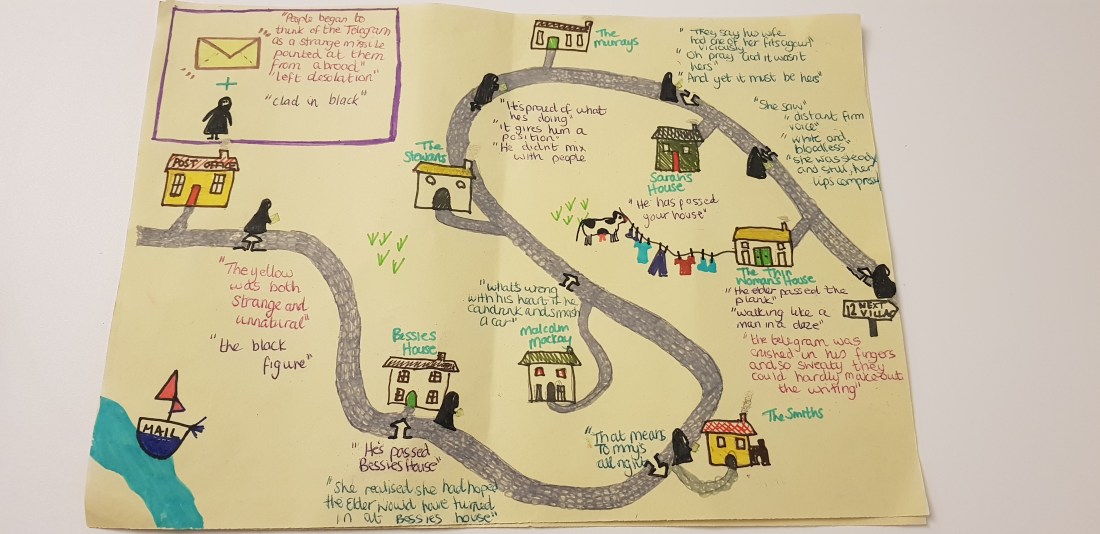 "People began to
think of the Telegram
as a strange missile
pointed at them
from abroad"
"left desolation"
"clad in black"
POST/OFFICE
"The yellow
was both
strange and
unnatural"
"the black
figure"
MAIL
Bessies
House
"He's passed
Bessies House"
"She realised she had hoped
the Elder would have turned
in at Bessies house"
The
Stewarts
The
murrays
"It's proud of what
he's doing"
"it gives him a
position"
"He didn't mix
with people
"They say his wife
had one of her fits again"
viciously
"Oh pray God it wasn't
hers"
"And yet it must be hers"
Sarah's
House
"He has passed
your house"
"She saw"
"distant firm
voice"
"white and
bloodless"
"she was steady
and still, her
lips compressed
"what's wrong
with his heart if he
can drink and smash
a car"
Malcolm
Mackay
The Thin
Woman's House
"the elder passed the
plank"
"walking like a
man in a daze"
"the telegram was
crushed in his fingers
and so sweaty they
could hardly make out
the writing"
12 NEXT
VILLAG
The Smiths
"That means
Tommy's